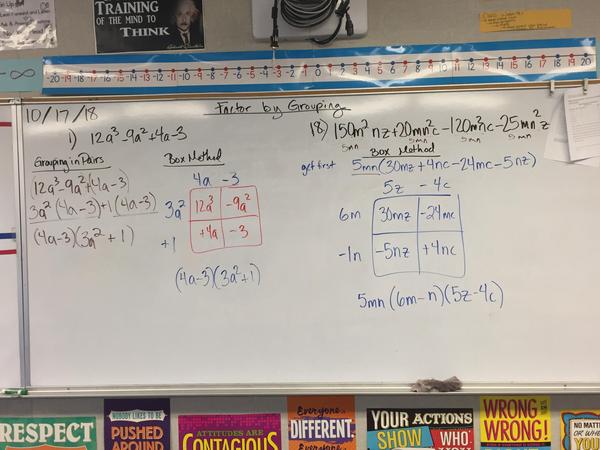 TRAINING
OF THE MIND TO
THINK
-∞
-20 -19 -18 -17 -16 -15 -14 -13 -12 -11 -10 -9 -8 -7 -6 -5 -4 -3 -2 -1 0 1 2 3 4 5 6 7 8 9 10 11 12 13 14 15 16 17 18 19 20
10/17/18
Factor by Grouping
1) 12a³-9a²+4a-3
Grouping in Pairs
(12a³-9a²)+(4a-3)
3a²(4a-3)+1(4a-3)
(4a-3)(3a²+1)
Box Method
4a -3
3a² 12a³ -9a²
+1 +4a -3
(4a-3)(3a²+1)
18) 150m²nz+20mn²c-120m²nc-25mn²z
5mn 5mn 5mn 5mn
Box Method
get first 5mn(30mz+4nc-24mc-5nz)
5z -4c
6m 30mz -24mc
-1n -5nz +4nc
5mn(6m-n)(5z-4c)
RESPECT
NOBODY LIKES TO BE
PUSHED
AROUND
ATTITUDES ARE
CONTAGIOUS
Everyone
DIFFERENT.
Everyone
YOUR ACTIONS
SHOW WHO
WRONG
WRONG!
NO MATT
OR WHE
YOU